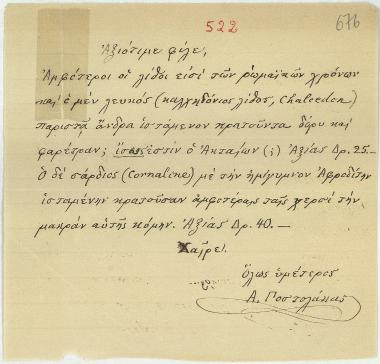 522
676
Ἀξιότιμε φίλε,
Ἀμφότεροι οἱ λίθοι εἰσὶ τῶν ῥωμαϊκῶν χρόνων
καὶ ὁ μὲν λευκὸς (καλχηδόνιος λίθος, Chalcedon)
παριστᾷ ἄνδρα ἱστάμενον κρατοῦντα δόρυ καὶ
φαρέτραν; ἴσως ἐστὶν ὁ Ἀκταίων (;) Ἀξίας Δρ. 25.—
Ὁ δὲ σάρδιος (Cornaline) μὲ τὴν ἡμίγυμνον Ἀφροδίτην
ἱσταμένην κρατοῦσαν ἀμφοτέραις ταῖς χερσὶ τὴν
μακρὰν αὐτῆς κόμην. Ἀξίας Δρ. 40.—
Χαῖρε!
Ὅλως ὑμέτερος
Α. Ποστολάκας